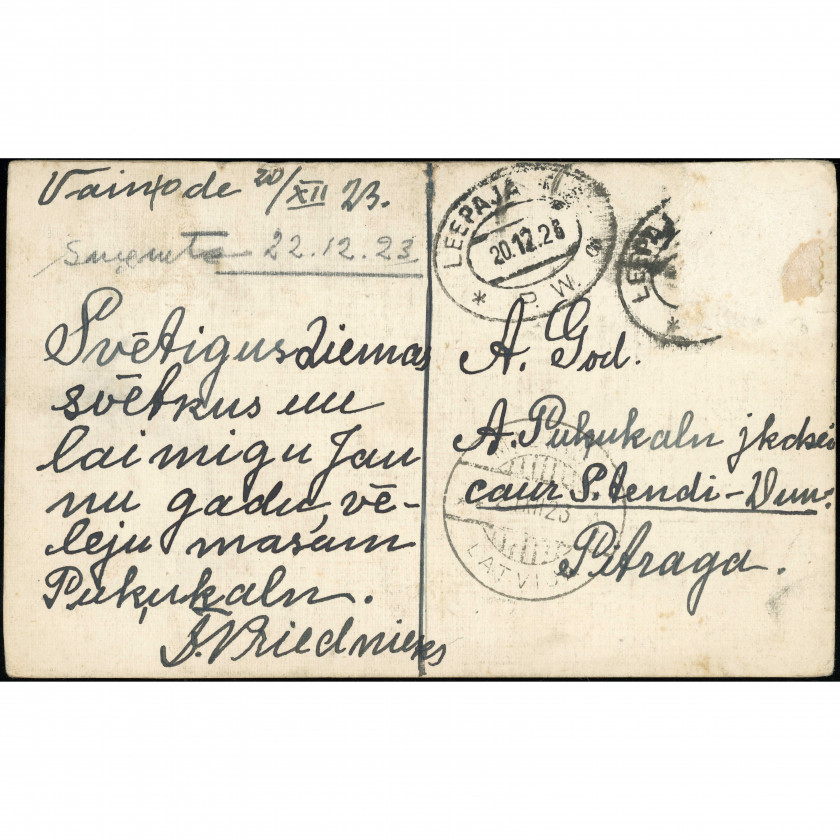 Vaiņode 20/XII 23.
Saņemts 22.12.23
Svētigus Ziemas
svētkus un
laimigu Jau
nu gadu, vē-
leju māsām
Puķukaln.
J. Priednieks
LEEPAJA
20.12.23
* P. W. *
LEEPAJ
*
A. God.
A. Puķukaln jkdzei
caur Stendi-Dun.
Pitraga.
XII 23
LATVIJA